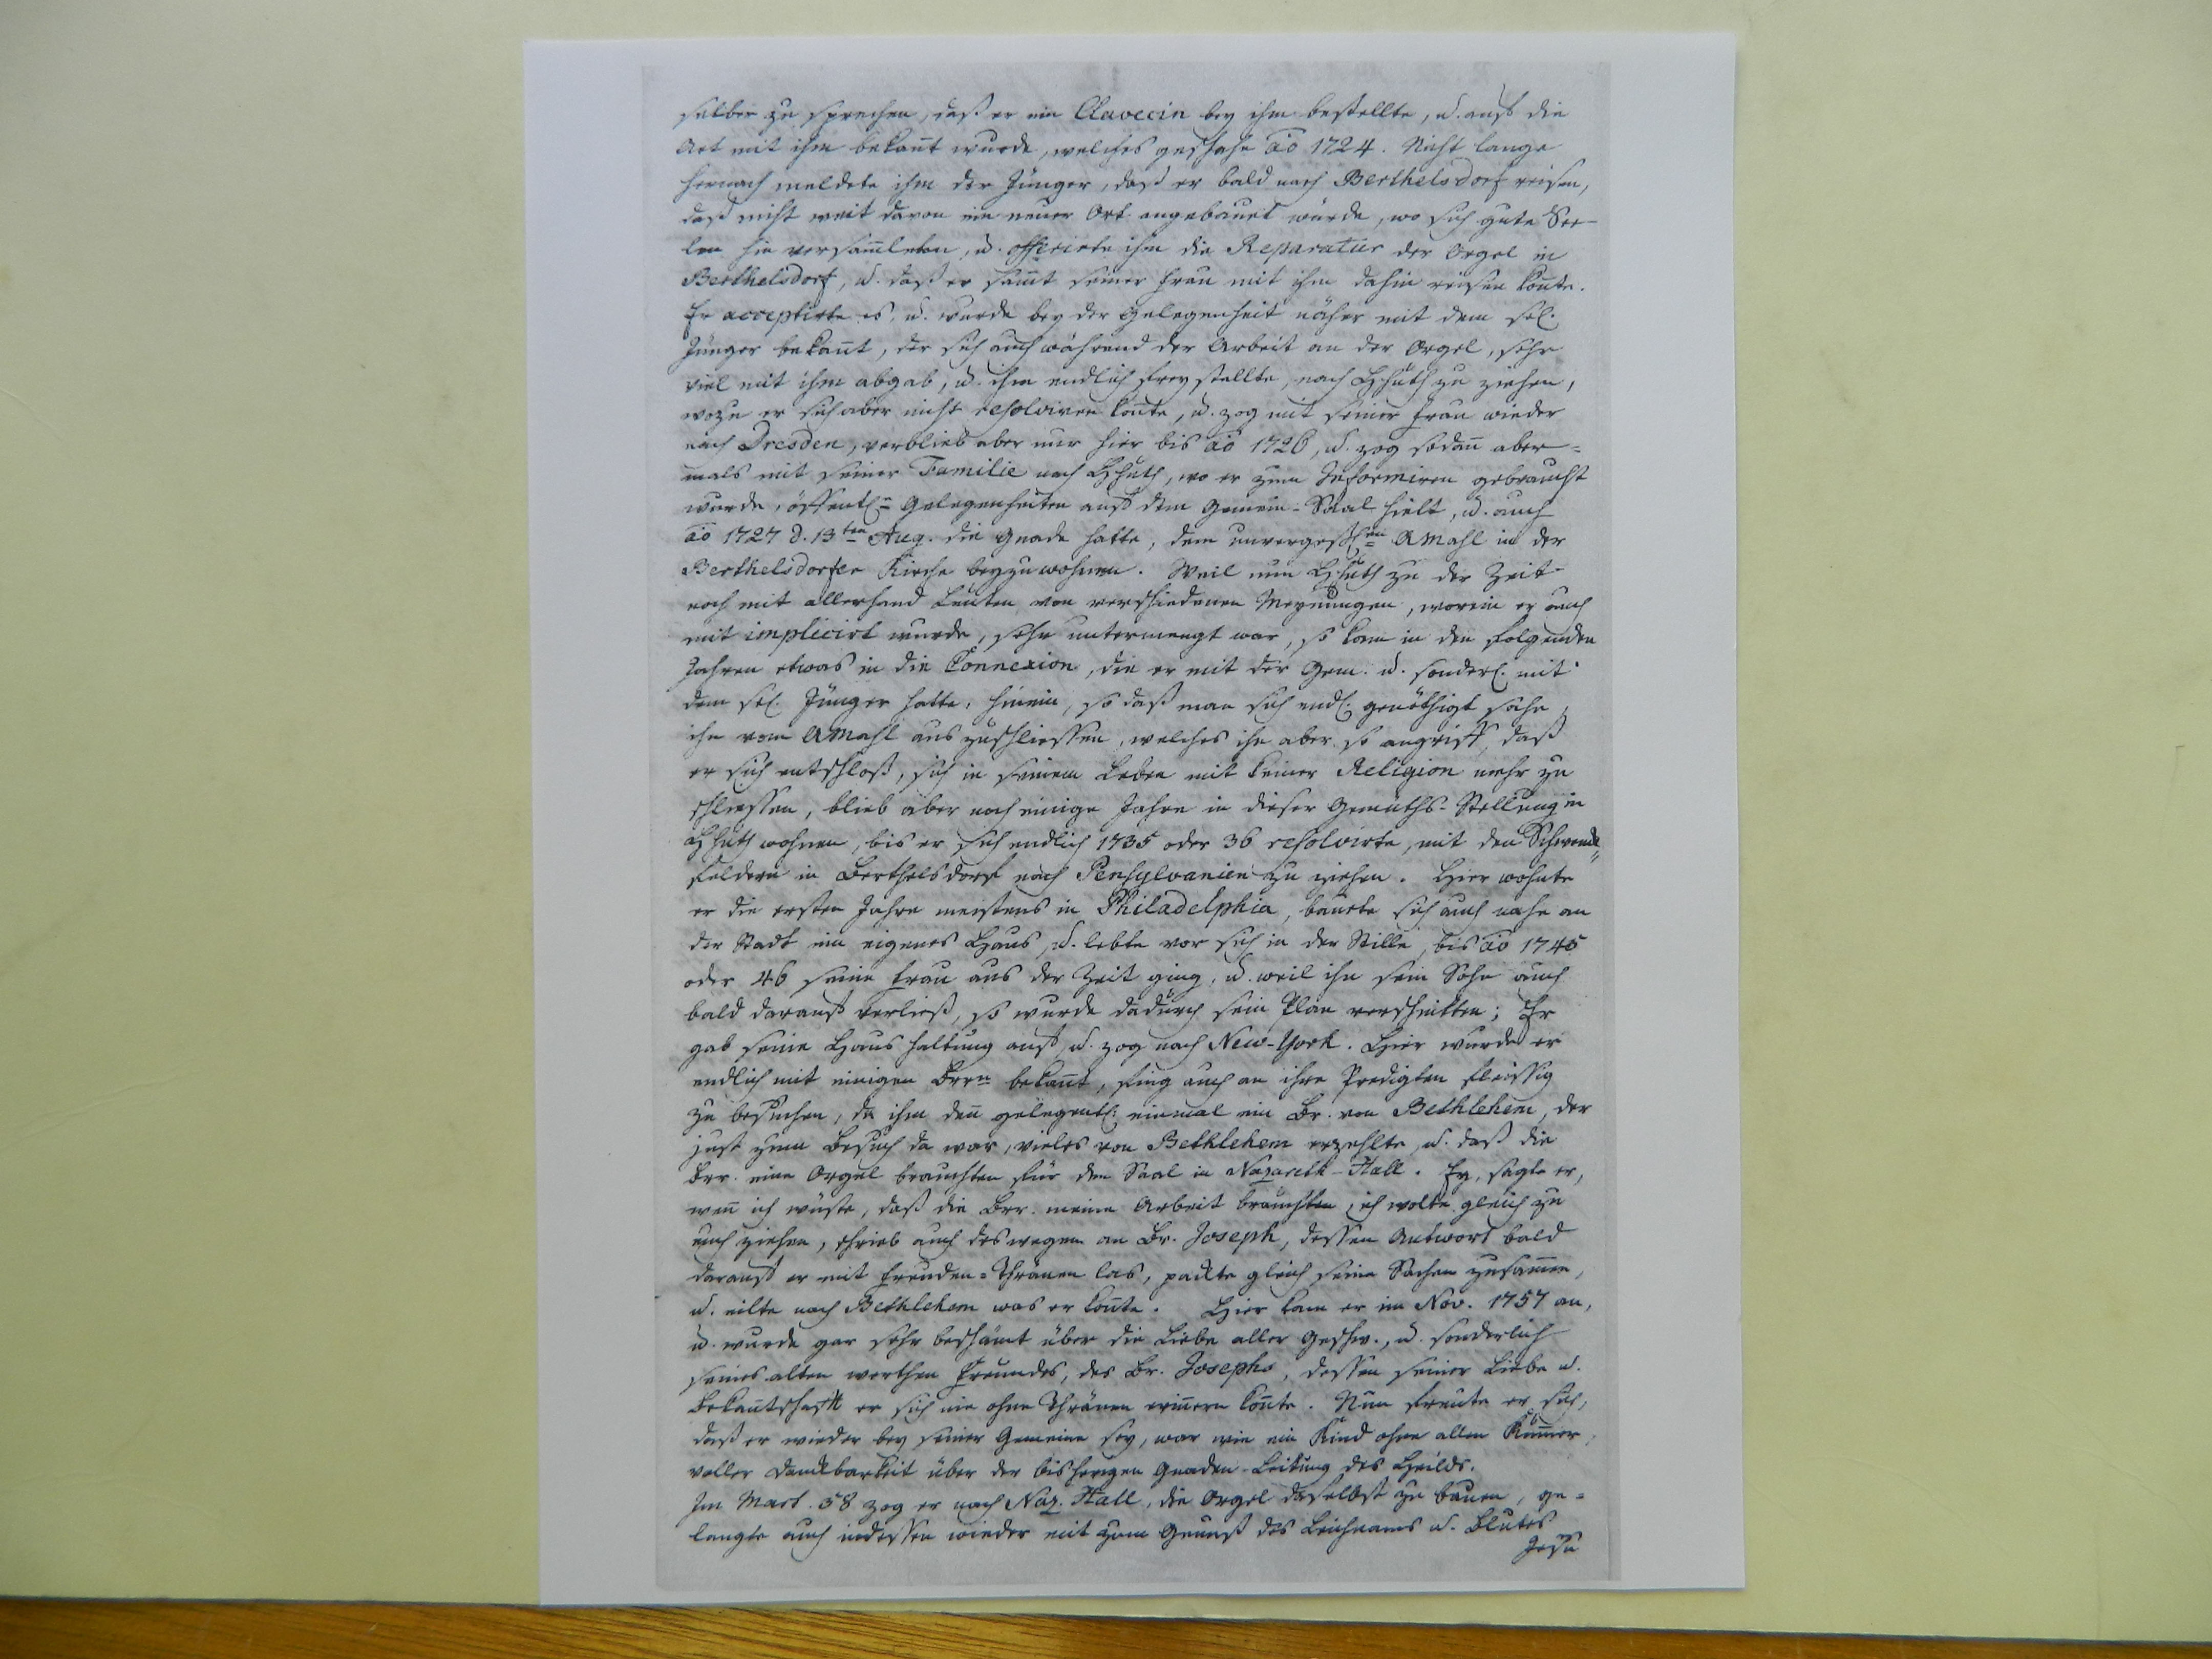 selber zu sprechen, daß er ein Clavecin bey ihm bestellte, u. auf die
Art mit ihm bekañt wurde, welches geschahe aō 1724. Nicht lange
hernach meldete ihm der Jünger, daß er bald nach Berthelsdorf reisen,
daß nicht weit davon ein neuer Ort angebauet würde, wo sich gute See-
len hin versam̄leten, u. offerirte ihm die Reparatur der Orgel in
Berthelsdorf, u. daß er sam̄t seiner Frau mit ihm dahin reisen könte.
Er acceptirte es, u. wurde bey der Gelegenheit näher mit dem sel.
Jünger bekañt, der sich auch während der Arbeit an der Orgel, sehr
viel mit ihm abgab, u. ihm endlich freystellte, nach Hhuth zu ziehen,
wozu er sich aber nicht resolviren konte, u. zog mit seiner Frau wieder
nach Dresden, verblieb aber nur hier bis aō 1726, u. zog sodañ aber-
mals mit seiner Familie nach Hhuth, wo er zum Informiren gebraucht
wurde, öffentl.n Gelegenheiten auf dem Gemein-Saal hielt, u. auch
aō 1727 d. 13ten Aug. die Gnade hatte, dem unvergeßl.en AMahl in der
Berthelsdorfer Kirche beyzuwohnen. Weil nun Hhuth zu der Zeit
noch mit allerhand Leuten von verschiedenen Meynungen, worein er auch
mit implicirt wurde, sehr untermengt war, so kam in den folgenden
Jahren etwas in die Connexion, die er mit der Gem. u. sonderl. mit
dem sel. Jünger hatte, hinein, so daß man sich endl. genöthigt sahe,
ihn vom AMahl auszuschliessen, welches ihn aber so angriff, daß
er sich entschloß, sich in seinem Leben mit keiner Religion mehr zu
schliessen, blieb aber noch einige Jahre in dieser Gemüths-Stellung in
Hhuth wohnen, bis er sich endlich 1735 oder 36 resolvirte, mit den Schwenk-
feldern in Berthelsdorf nach Pensylvanien zu ziehen. Hier wohnte
er die ersten Jahre meistens in Philadelphia, bauete sich auch nahe an
der Stadt ein eigenes Haus, u. lebte vor sich in der Stille, bis aō 1745
oder 46 seine Frau aus der Zeit ging, u. weil ihn sein Sohn auch
bald darauf verließ, so wurde dadurch sein Plan verschnitten; Er
gab seine Haushaltung auf, u. zog nach New-York. Hier wurde er
endlich mit einigen Brrn bekañt, fing auch an ihre Predigten fleissig
zu besuchen, da ihm deñ gelegentl. einmal ein Br. von Bethlehem, der
just zum Besuch da war, vieles von Bethlehem erzehlte, u. daß die
Brr. eine Orgel brauchten für den Saal in Nazareth-Hall. Ey, sagte er,
weñ ich wüste, daß die Brr. meine Arbeit brauchten, ich wolte gleich zu
euch ziehen, schrieb auch deswegen an Br. Joseph, dessen Antwort bald
darauf er mit Freuden-Thränen las, packte gleich seine Sachen zusam̄en,
u. eilte nach Bethlehem was er konte. Hier kam er im Nov. 1757 an,
u. wurde gar sehr beschämt über die Liebe aller Geschw., u. sonderlich
seines alten werthen Freundes, des Br. Josephs, dessen seiner Liebe u.
Bekañtschaft er sich nie ohne Thränen eriñern konte. Nun freute er sich,
daß er wieder bey seiner Gemeine sey, war wie ein Kind ohne allen Kum̄er,
voller Danckbarkeit über der bisherigen Gnaden-Leitung des Heilds.
Im Mart. 58 zog er nach Naz. Hall, die Orgel daselbst zu bauen, ge-
langte auch indessen wieder mit zum Genuß des Leichnams u. Blutes
Jesu